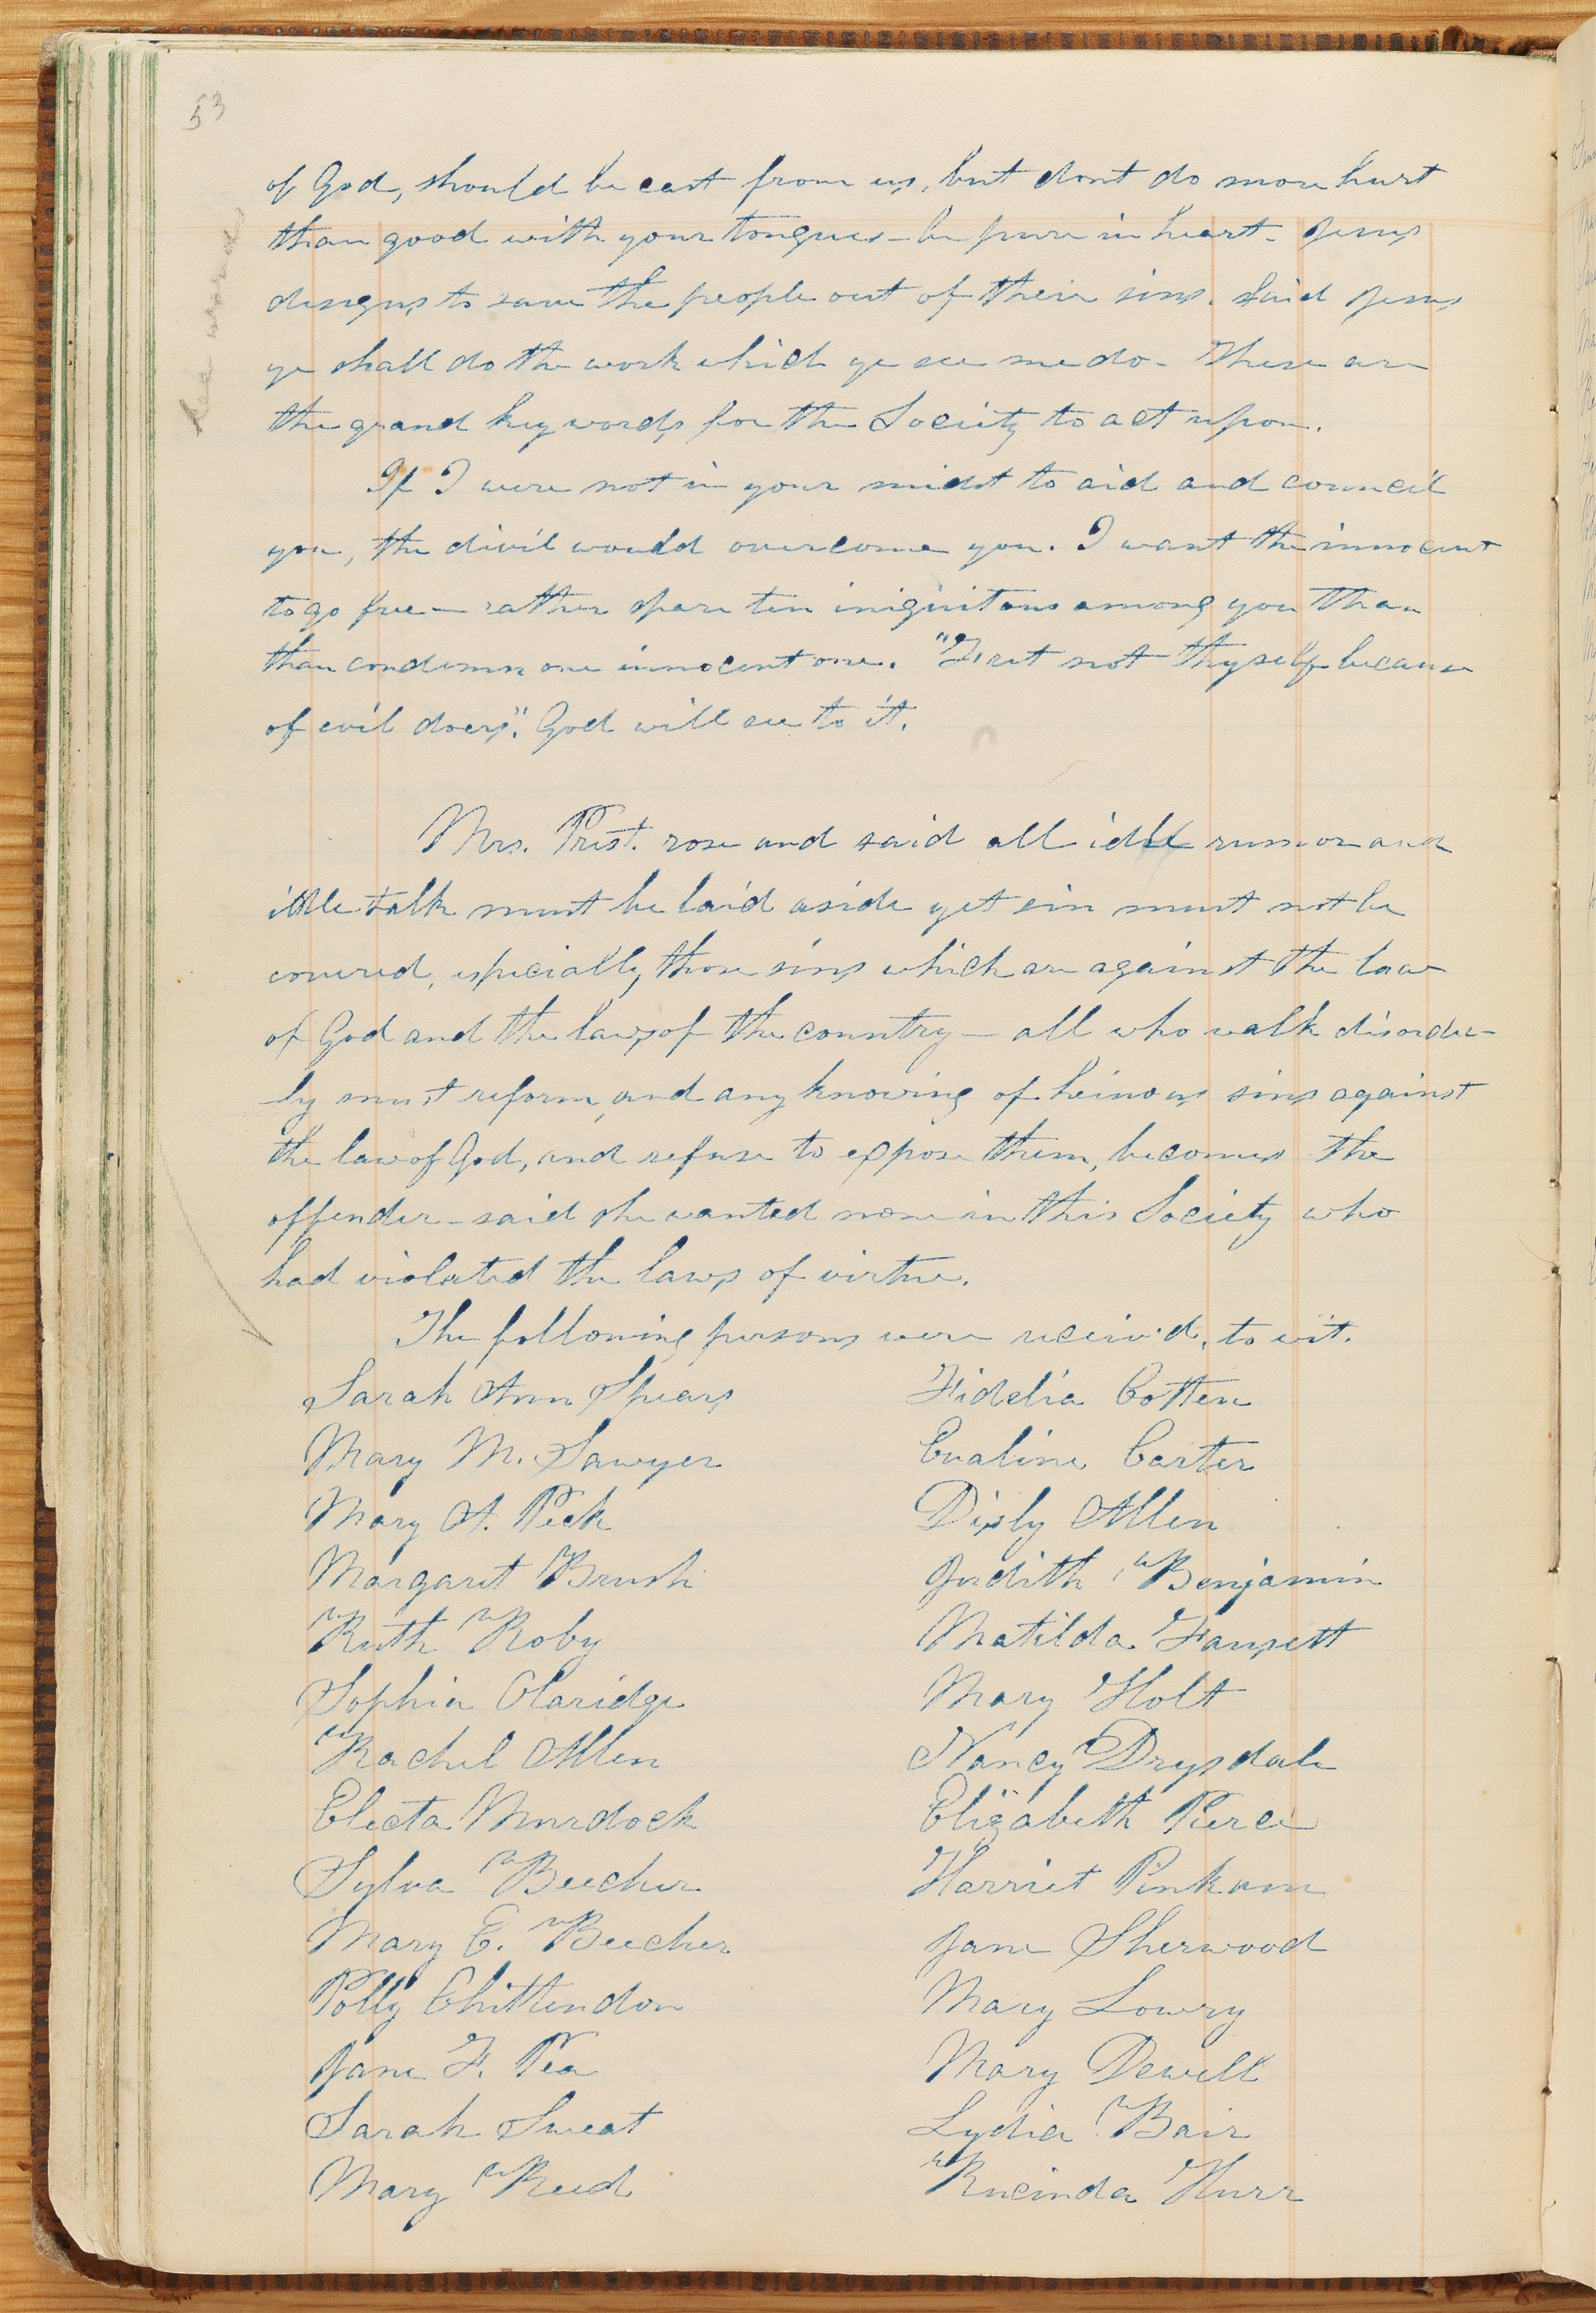 53
of God, should be cast from us, but dont do more hurt
than good with your tongues - be pure in heart - Jesus
designs to save the people out of their sins. Said Jesus
ye shall do the work which ye see me do - These are
the grand key words for the Society to act upon.
If I were not in your midst to aid and council
you, the divil would overcome you. I want the innocent
to go free - rather spare ten iniquitous among you than
than condemn one innocent one. "Fret not thyself because
of evil doers". God will see to it.
Mrs. Prest. rose and said all idle rumor and
idle talk must be laid aside yet sin must not be
covered, especially those sins which are against the law
of God and the laws of the country - all who walk disorder-
ly must reform, and any knowing of heinous sins against
the law of God, and refuse to expose them, becomes the
offender - said she wanted none in this Society who
had violated the laws of virtue.
The following persons were receiv'd, to wit.
Sarah Ann Spears Fidelia Cotten
Mary M. Sawyer Evaline Carter
Mary A. Peck Disly Allen
Margaret Brush Judith Benjamin
Ruth Roby Matilda Fausett
Sophia Claridge Mary Holt
Rachel Allen Nancy Drysdale
Electa Murdock Elizabeth Pierce
Sylva Beecher Harriet Pinkam
Mary E. Beecher Jane Sherwood
Polly Chittendon Mary Lowry
Jane F. Pea Mary Dewell
Sarah Sweat Lydia Bair
Mary Reed Rucinda Hurr